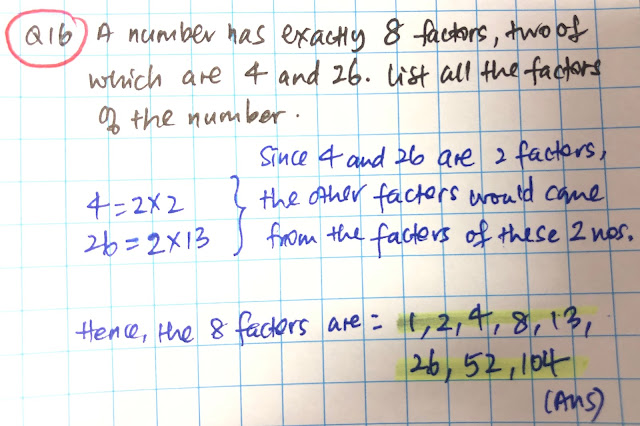 Q16 A number has exactly 8 factors, two of
which are 4 and 26. List all the factors
of the number.
Since 4 and 26 are 2 factors,
4 = 2 x 2 the other factors would come
26 = 2 x 13 from the factors of these 2 nos.
Hence, the 8 factors are = 1, 2, 4, 8, 13,
26, 52, 104
(Ans)